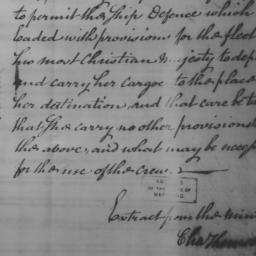 to permit the Ship Defence which
loaded with provisions for the fleet
his most Christian Majesty to dep
and carry her cargoe to the place
her destination, and that care be t
that she carry no other provisions
the above, and what may be neces
for the use of the crew.
Extract from the min
Cha Thomson